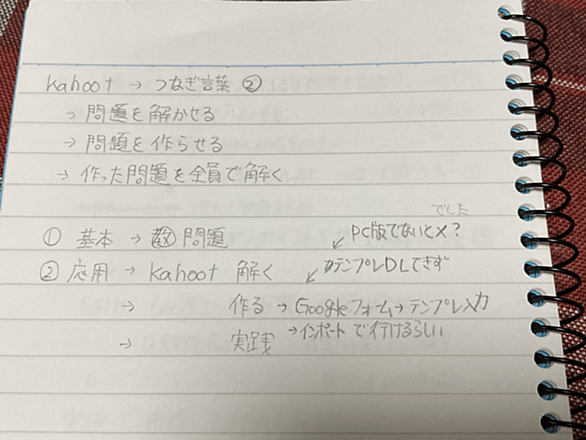 kahoot → つなぎ言葉 ②
→ 問題を解かせる
→ 問題を作らせる
→ 作った問題を全員で解く
でした
① 基本 → 問題
↙ PC版でないと×?
② 応用 → kahoot 解く
↙ テンプレDLできず
→ 作る → Googleフォーム → テンプレ入力
→ 実践
→インポートで行けるらしい